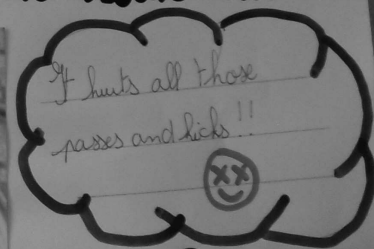 It hurts all those
passes and kicks!!